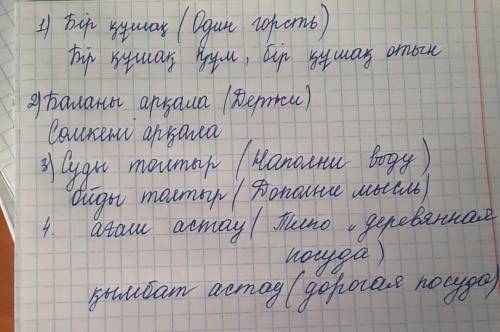 1) Бір құшақ (Один горсть)
Бір құшақ құм, бір құшақ отын
2) Баланы арқала (Держи)
Сөмкені арқала
3) Суды толтыр (Наполни воду)
ойды толтыр (Дополни мысль)
4. ағаш астау (Типо „деревянная
посуда)
қымбат астау (дорогая посуда)